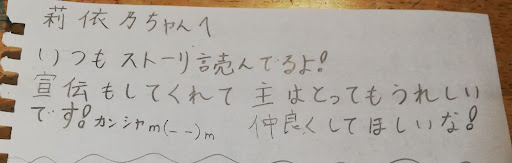 莉依乃ちゃんへ
いつもストーリ読んでるよ!
宣伝もしてくれて 主はとってもうれしい
です!カンシャm(－－)m 仲良くしてほしいな!